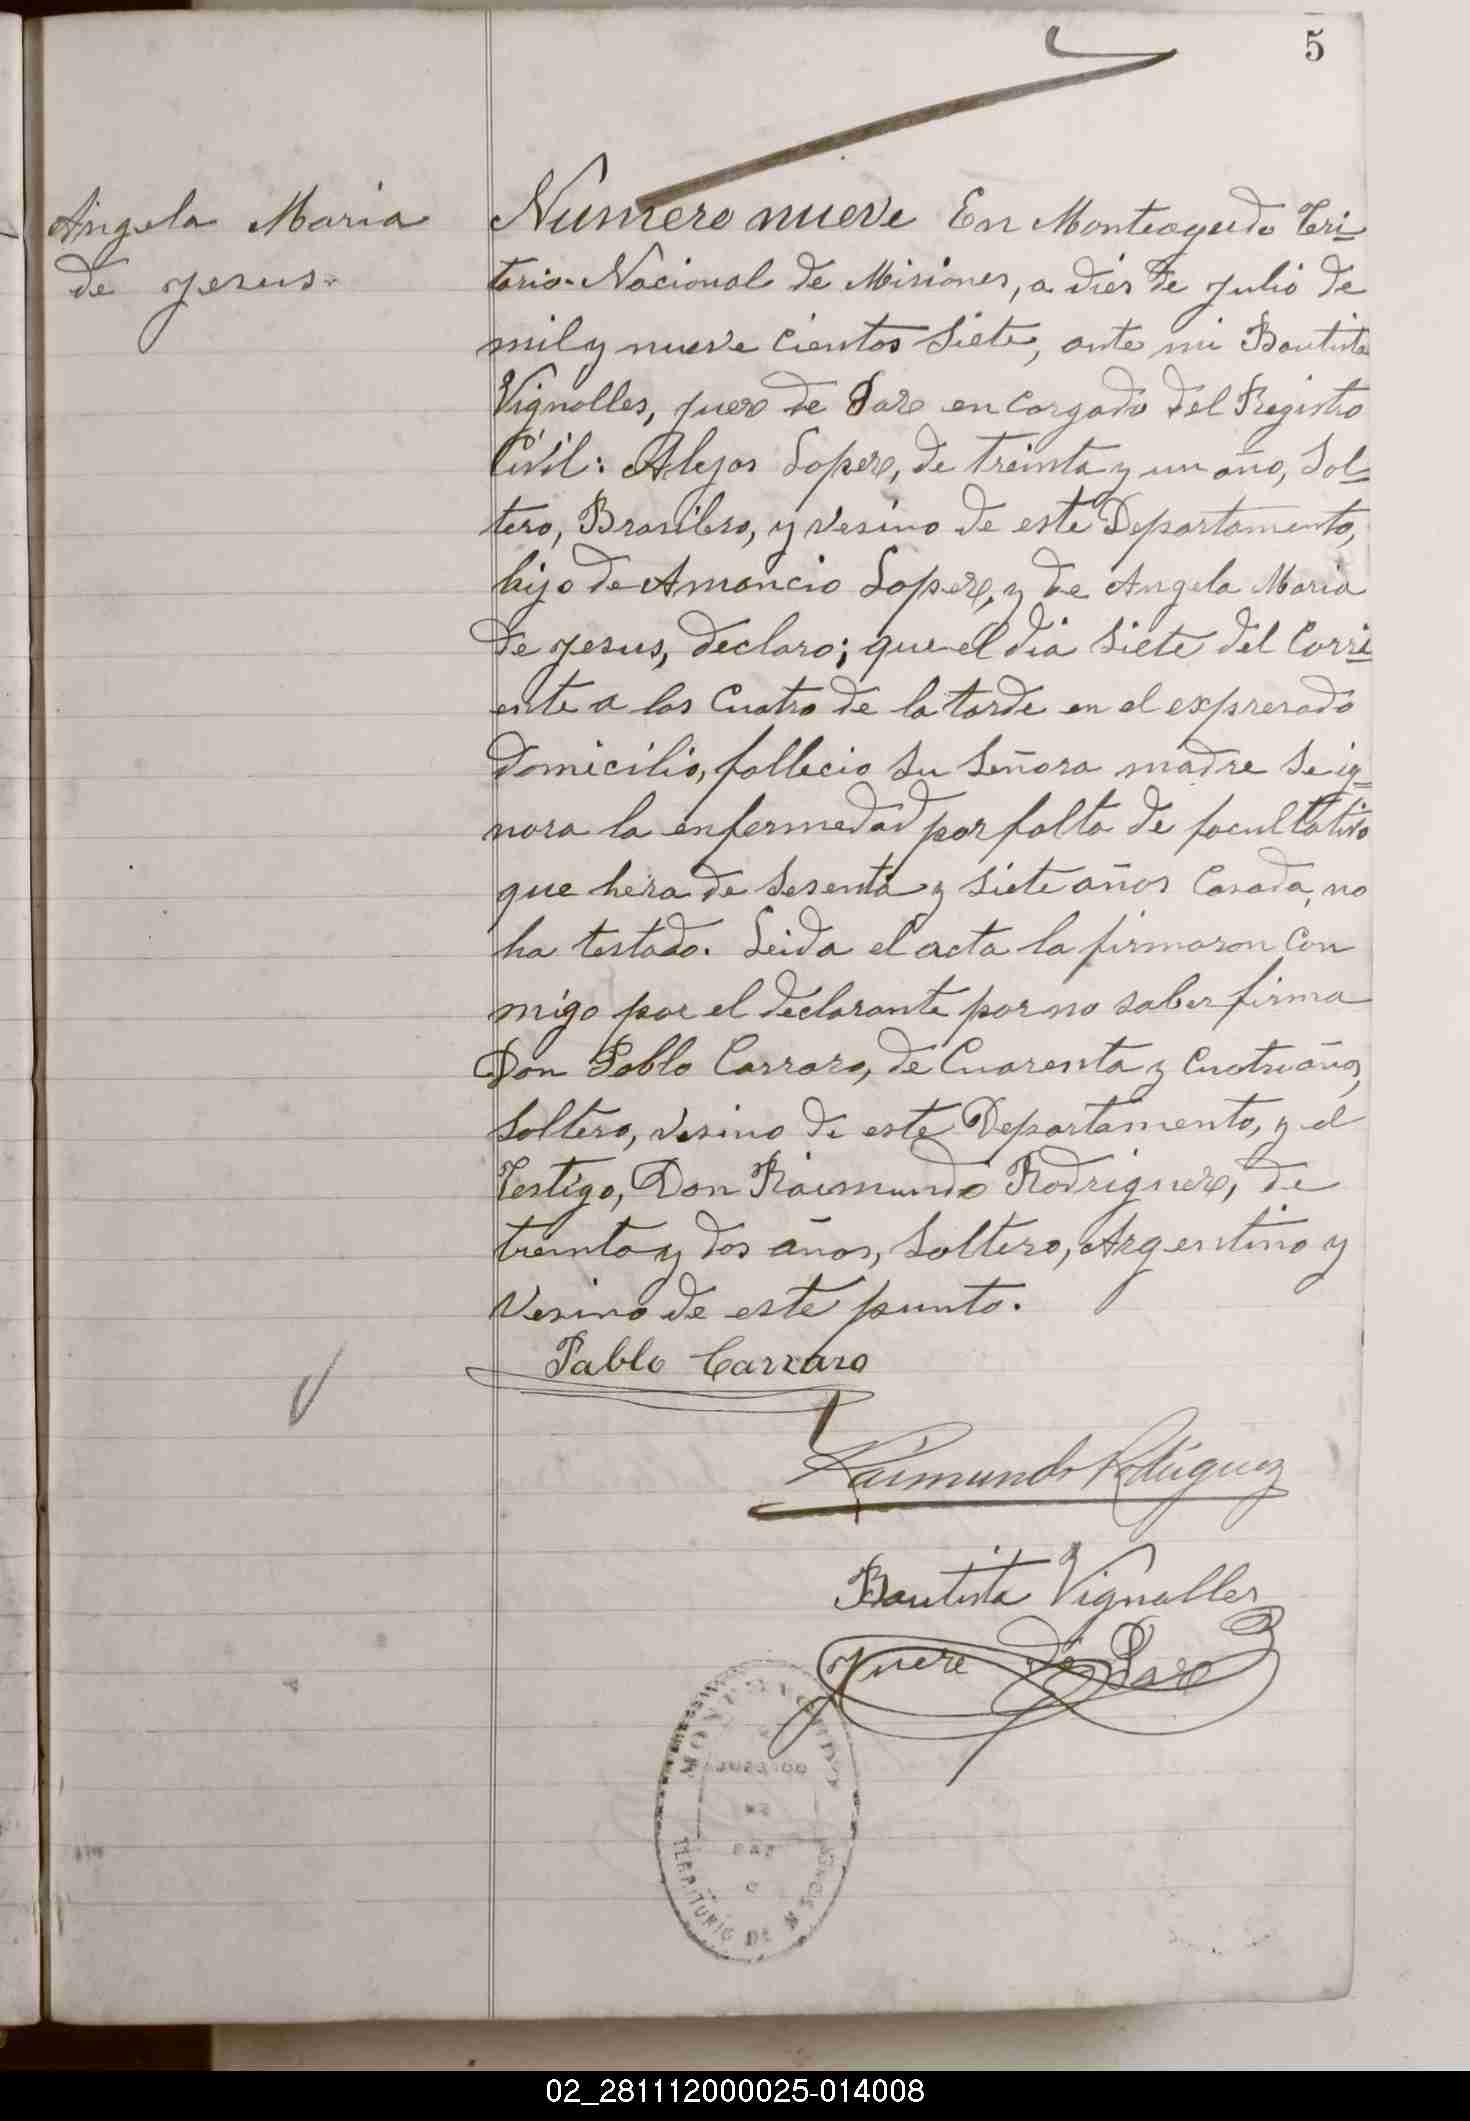 5
Angela Maria
de Jesus.
Numero nueve En Monteagudo Teri-
torio Nacional de Misiones, a dies de Julio de
mil y nueve cientos siete, ante mi Bautista
Vignolles, Juez de Paz en cargado del Registro
Civil: Alejos Lopez, de treinta y un año, Sol-
tero, Brasilero, y vesino de este Departamento,
hijo de Amancio Lopez, y de Angela Maria
de Jesus, declaro; que el dia siete del Corri-
ente a las Cuatro de la tarde en el expresado
domicilio, fallecio su señora madre se ig-
nora la enfermedad por falta de facultativo
que hera de sesenta y siete años Casada, no
ha testado. Leida el acta la firmaron Con
migo por el declarante por no saber firma
Don Pablo Carraro, de Cuarenta y Cuatro años,
soltero, vesino de este Departamento, y el
Testigo, Don Raimundo Rodriguez, de
treinta y dos años, soltero, Argentino y
vesino de este punto.
Pablo Carraro
Raimundo Rodriguez
Bautista Vignolles
Juez de Paz
MONTEAGUDO
JUZGADO
DE
PAZ
TERRITORIO DE MISIONES
02_281112000025-014008